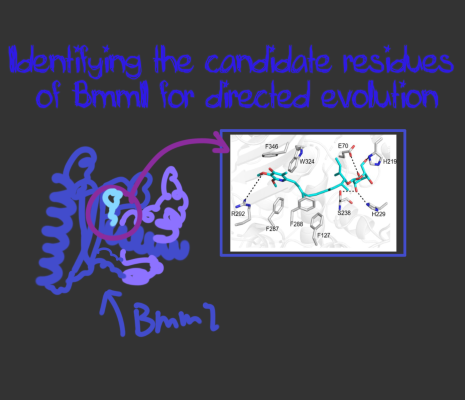 Identifying the candidate residues
of BmmI for directed evolution
F346
W324
E70
H219
R292
F287
F288
F127
S238
H229
BmmI